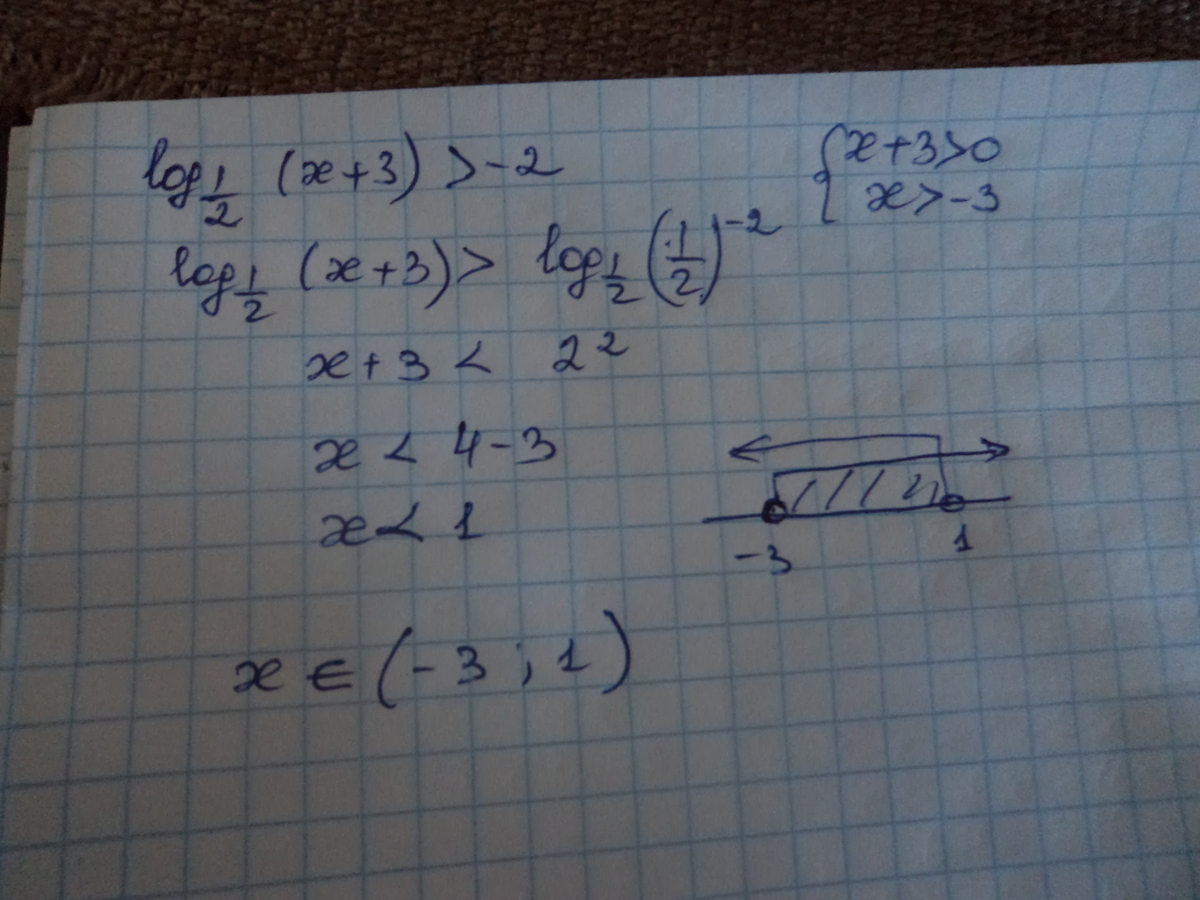 log_{1/2} (x+3) > -2
{ x+3>0
x > -3
log_{1/2} (x+3) > log_{1/2} (1/2)^{-2}
x+3 < 2^2
x < 4-3
x < 1
-3 1
x ∈ (-3 ; 1)